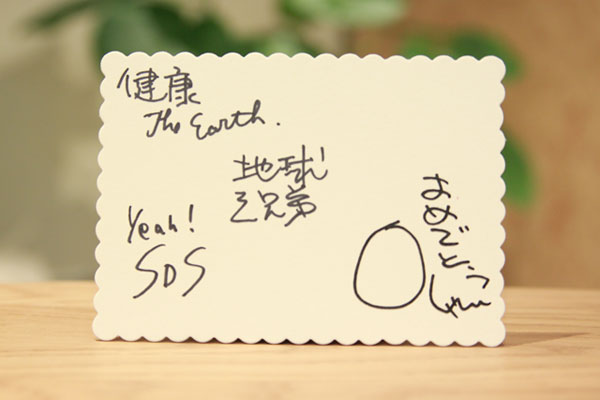 健康
The Earth.
地球
三兄弟
Yeah!
SDS
おめでとう